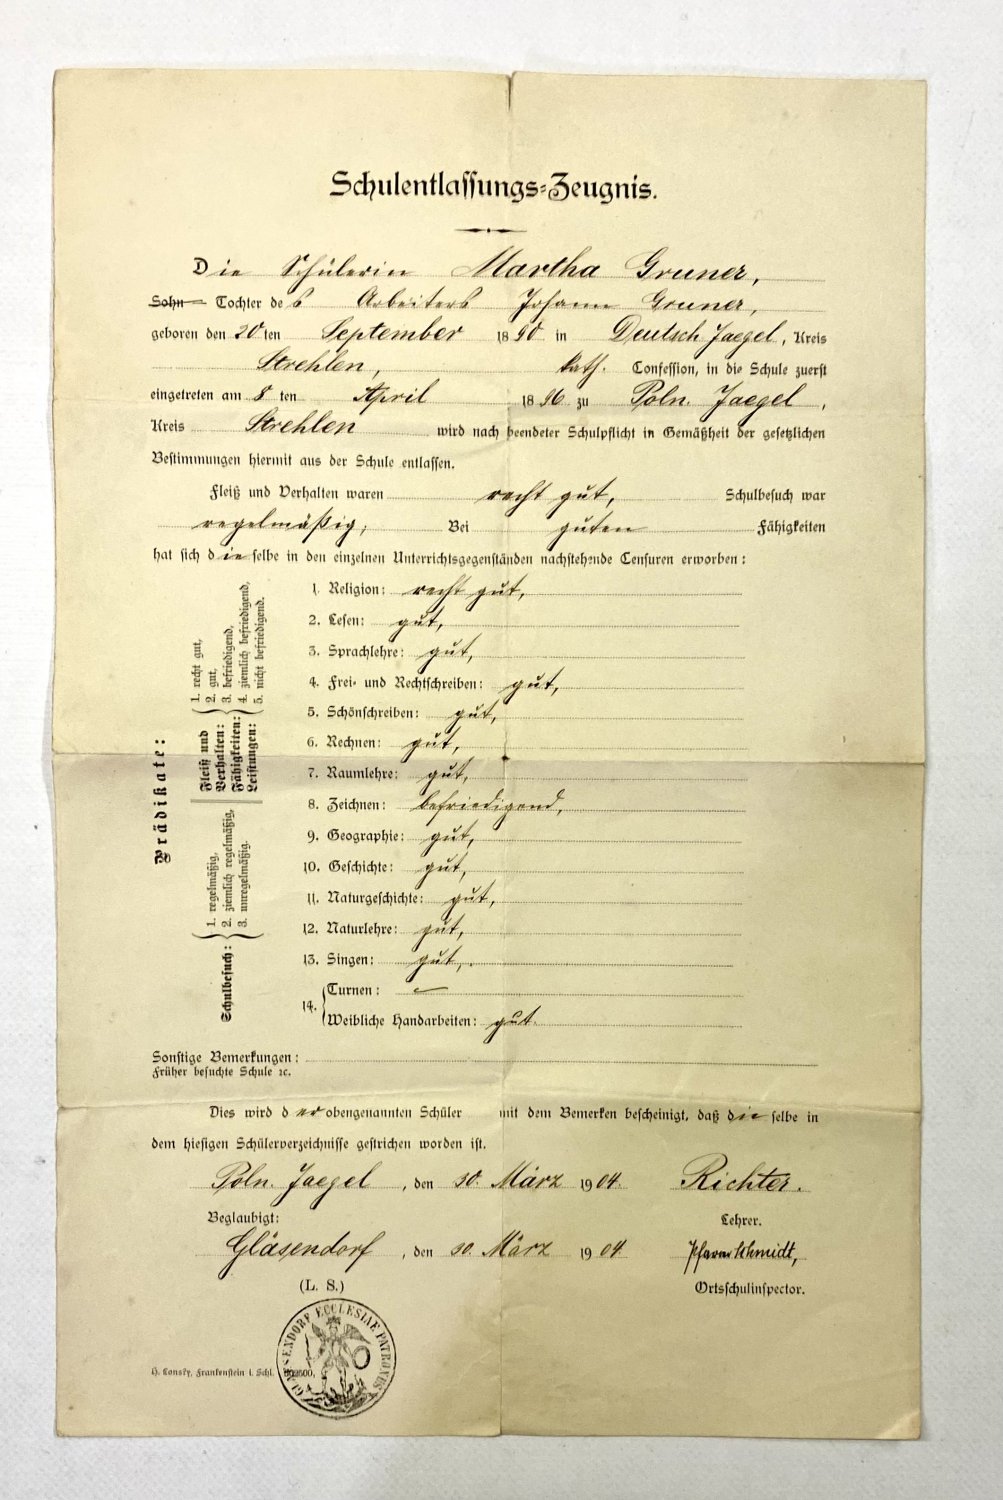 Schulentlassungs-Zeugnis.
Die Schülerin Martha Gruner,
Sohn Tochter des Arbeiters Johann Gruner,
geboren den 20ten September 1890 in Deutsch Jaegel, Kreis
Strehlen, kath. Confession, in die Schule zuerst
eingetreten am 8 ten April 1896 zu Poln. Jaegel,
Kreis Strehlen wird nach beendeter Schulpflicht in Gemäßheit der gesetzlichen
Bestimmungen hiermit aus der Schule entlassen.
Fleiß und Verhalten waren recht gut, Schulbesuch war
regelmäßig; Bei guten Fähigkeiten
hat sich dieselbe in den einzelnen Unterrichtsgegenständen nachstehende Censuren erworben:
1. Religion: recht gut,
2. Lesen: gut,
3. Sprachlehre: gut,
4. Frei- und Rechtschreiben: gut,
5. Schönschreiben: gut,
6. Rechnen: gut,
7. Raumlehre: gut,
8. Zeichnen: befriedigend,
9. Geographie: gut,
10. Geschichte: gut,
11. Naturgeschichte: gut,
12. Naturlehre: gut,
13. Singen: gut,.
14. Turnen: –
Weibliche Handarbeiten: gut.
Prädikate:
Schulbesuch:
1. regelmäßig,
2. ziemlich regelmäßig,
3. unregelmäßig.
Fleiß und
Verhalten:
Fähigkeiten:
Leistungen:
1. recht gut,
2. gut,
3. befriedigend,
4. ziemlich befriedigend,
5. nicht befriedigend.
Sonstige Bemerkungen:
Früher besuchte Schule ꝛc.
Dies wird der obengenannten Schüler mit dem Bemerken bescheinigt, daß dieselbe in
dem hiesigen Schülerverzeichnisse gestrichen worden ist.
Poln. Jaegel, den 30. März 1904. Richter.
Beglaubigt: Lehrer.
Gläsendorf, den 30. März 1904 Pfarrer Schmidt,
(L. S.) Ortsschulinspector.
GLAESENDORF ECCLESIAE PATRONUS
H. Lonsky, Frankenstein i. Schl.